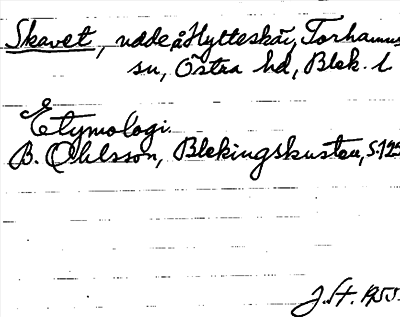 Skavet, udde å Hytteskär, Torhamns
sn, Östra hd, Blek. l
Etymologi.
B. Ohlsson, Blekingskusten, s. 125
J. H. 1955.